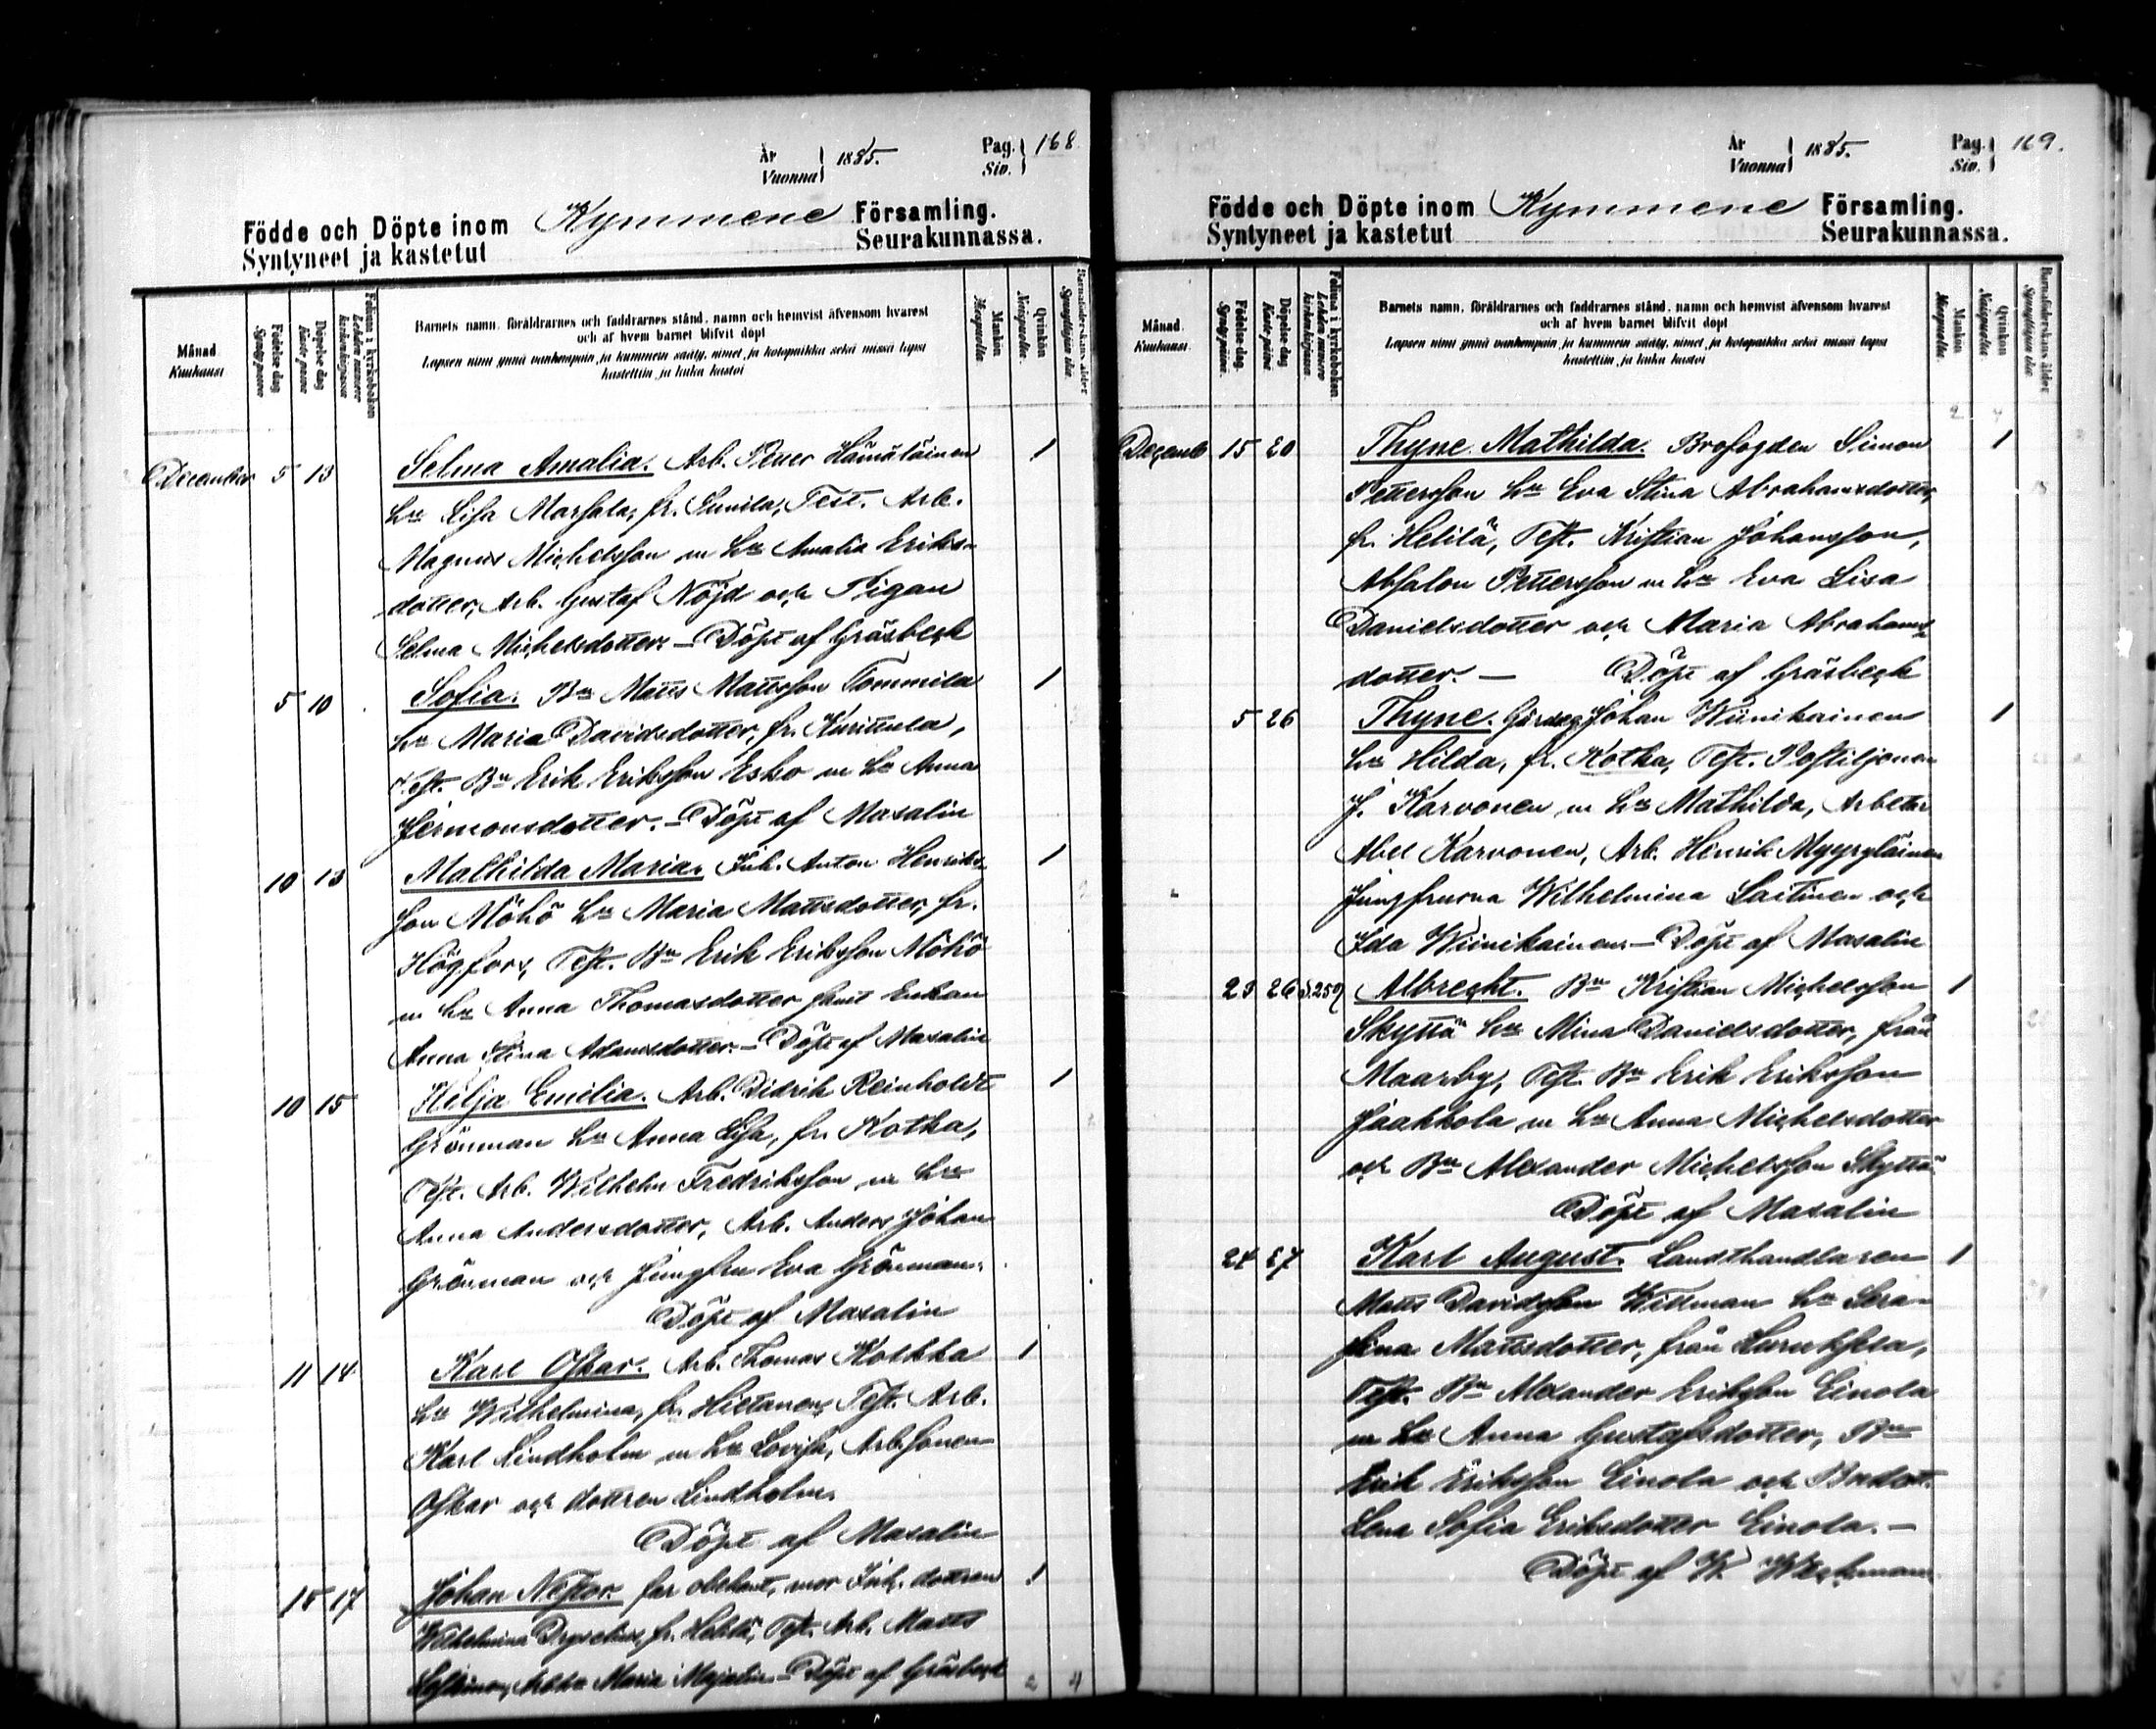 År
Vuonna 1885.
Pag.
Siv. 168
Födde och Döpte inom Kymmene Församling.
Syntyneet ja kastetut Seurakunnassa.
Månad.
Kuukausi
Födelse dag
Syntypäivä
Döpelse dag
Kaste päivä
Folium i kyrkoboken
Lehden numero kirkonkirjassa
Barnets namn, föräldrarnes och faddrarnes stånd, namn och hemvist äfvensom hvarest
och af hvem barnet blifvit döpt
Lapsen nimi ynnä vanhempain ja kummein sääty, nimet ja kotopaikka sekä missä lapsi
kastettiin ja kuka kastoi
Mankön
Miespuolta.
Qvinkön
Naispuolta.
Barnaföderskans ålder
Synnyttäjän ikä.
December 5 13 Selma Amalia. Arb. Petter Hämäläinen 1
hu Lisa Marsala, fr. Sunila, Test. Arb.
Magnus Michelsson m hu Amalia Eriks-
dotter, Arb. Gustaf Nöjd och Pigan
Selma Michelsdotter. — Döpt af Gräsbeck
5 10 Sofia. Bn Matts Mattsson Tommila 1
hu Maria Davidsdotter, fr. Kurittula,
Test. Bn Erik Eriksson Esko m hu Anna
Jeremonsdotter. — Döpt af Masalin
10 13 Mathilda Maria. Inh. Anton Henriks- 1
son Möhö hu Maria Mattsdotter, fr.
Högfors, Test. Bn Erik Eriksson Möhö
m hu Anna Thomasdotter samt Enkan
Anna Stina Adamsdotter. — Döpt af Masalin
10 15 Hilja Emilia. Arb. Didrik Reinholdt 1
Grönman hu Anna Lisa, fr. Kotka,
Test. Arb. Wilhelm Fredriksson m hu
Anna Andersdotter, Arb. Anders Johan
Grönman och Jungfru Eva Grönman.
Döpt af Masalin
11 14 Karl Oskar. Arb. Thomas Kolkka 1
hu Wilhelmina, fr. Hietanen, Test. Arb.
Karl Lindholm m hu Lovisa, Arb. sonen
Oskar och dottren Lindholm.
Döpt af Masalin
15 17 Johan Nestor. far obekant, mor Inh. dottren 1
Wilhelmina fr. Helilä, Test. Arb. Matts
Maria Döpt af Gräsbeck
2 4
År
Vuonna 1885.
Pag.
Siv. 169.
Födde och Döpte inom Kymmene Församling.
Syntyneet ja kastetut Seurakunnassa.
Månad.
Kuukausi
Födelse dag
Syntypäivä
Döpelse dag
Kaste päivä
Folium i kyrkoboken
Lehden numero kirkonkirjassa
Barnets namn, föräldrarnes och faddrarnes stånd, namn och hemvist äfvensom hvarest
och af hvem barnet blifvit döpt
Lapsen nimi ynnä vanhempain ja kummein sääty, nimet ja kotopaikka sekä missä lapsi
kastettiin ja kuka kastoi
Mankön
Miespuolta.
Qvinkön
Naispuolta.
Barnaföderskans ålder
Synnyttäjän ikä.
2 4
Decemb 15 20 Thyne Mathilda. Brofogden Simon 1
Pettersson hu Eva Stina Abrahamsdotter,
fr. Helilä, Test. Kristian Johansson,
Absalon Pettersson m hu Eva Lisa
Danielsdotter och Maria Abrahams-
dotter. — Döpt af Gräsbeck
5 26 Thyne. Johan Wiinikainen 1
hu Hilda, fr. Kotka, Test. Postiljonen
J. Karvonen m hu Mathilda, Arbetar
Abel Karvonen, Arb. Henrik Myyryläinen
Jungfrurna Wilhelmina Laitinen och
Ida Wiinikainen. — Döpt af Masalin
23 26 S.259 Albrecht. Bn Kristian Michelsson 1
Skyttä hu Mina Danielsdotter, från
Maarby, Test. Bn Erik Eriksson
Jaakkola m hu Anna Michelsdotter
och Bn Alexander Michelsson Skyttä
Döpt af Masalin
24 27 Karl August. Landthandlaren 1
Matts Davidsson Widman hu Sera-
fina Mattsdotter, från
Test. Bn Alexander Eriksson Einola
m hu Anna Gustafsdotter, Bn
Erik Eriksson Einola och Bndott.
Lena Sofia Eriksdotter Einola. —
Döpt af W. Weckman